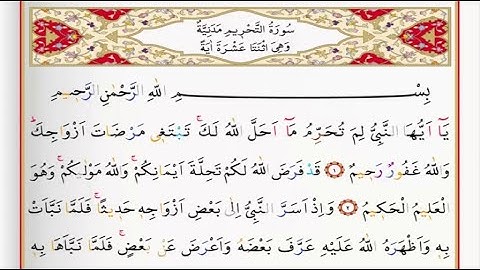 سُورَةُ التَّحْرِيمِ مَدَنِيَّةٌ
وَهِيَ اثْنَتَا عَشْرَةَ اٰيَةً
بِسْــــمِ اللهِ الرَّحْمٰنِ الرَّحِيمِ
يَٓا اَيُّهَا النَّبِيُّ لِمَ تُحَرِّمُ مَٓا اَحَلَّ اللهُ لَكَۚ تَبْتَغِي مَرْضَاتَ اَزْوَاجِكَۜ
وَاللهُ غَفُورٌ رَحِيمٌ ﴿١﴾ قَدْ فَرَضَ اللهُ لَكُمْ تَحِلَّةَ اَيْمَانِكُمْۚ وَاللهُ مَوْلٰيكُمْۚ وَهُوَ
الْعَلِيمُ الْحَكِيمُ ﴿٢﴾ وَاِذْ اَسَرَّ النَّبِيُّ اِلٰى بَعْضِ اَزْوَاجِهِ حَدِيثًاۚ فَلَمَّا نَبَّاَتْ
بِهِ وَاَظْهَرَهُ اللهُ عَلَيْهِ عَرَّفَ بَعْضَهُ وَاَعْرَضَ عَنْ بَعْضٍۚ فَلَمَّا نَبَّاَهَا بِهِ